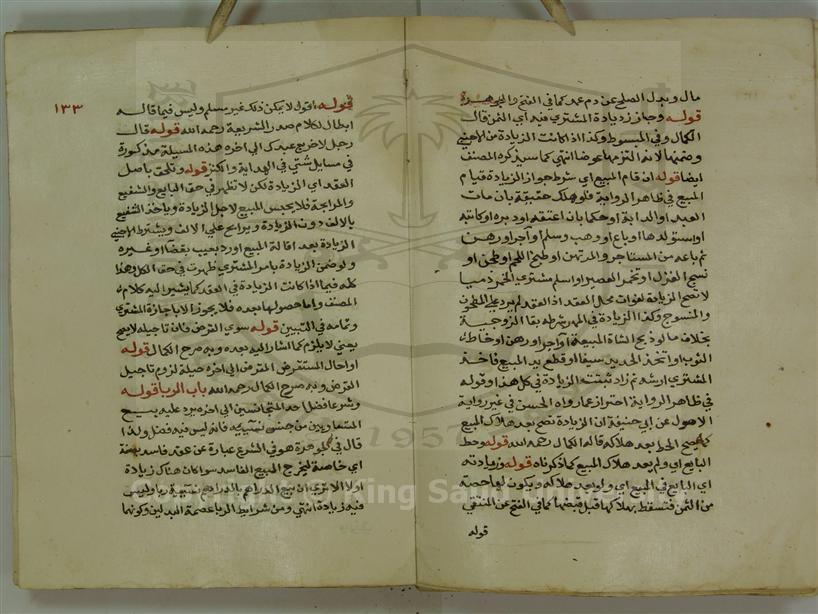 مال وبدل الصلح عن دم عمد كما في الفتح والجوهرة
قوله وجاز زيادة المشتري فيه أي الثمن قال
الكمال وفي المبسوط وكذا اذا كانت الزيادة من الاجنبي
وضمنها لانه التزمها عوضا انتهى كما سيذكره المصنف
ايضا قوله ان قام المبيع اي شرط جواز الزيادة قيام
المبيع في ظاهر الرواية فلو هلك حقيقة بان مات
العبد او الدابة او حكما بان اعتقه او دبره او كاتبه
او استولدها او باع او وهب وسلم او آجر او رهن
ثم باعه من المستاجر والمرتهن او طبخ اللحم او طحن او
نسج الغزل او تخمر العصير او اسلم مشتري الخمر ذميا
لا تصح الزيادة لفوات محل العقد اذ العقد لم يرد على المطحون
والمنسوج وكذا الزيادة في المهر شرطه بقا الزوجية
بخلاف ما لو ذبح الشاة المبيعة او آجر او رهن او خاط
الثوب او اتخذ الحديد سيفا او قطع يد المبيع فاخذ
المشتري ارشه ثم زاد تثبت الزيادة في كل هذا وقوله
في ظاهر الرواية احتراز عما رواه الحسن في غير رواية
الاصول عن ابي حنيفة ان الزيادة تصح بعد هلاك المبيع
كما يصح الحط بعد هلاكه قاله الكمال رحمه الله قوله وحط
البايع اي ولو بعد هلاك المبيع كما ذكرناه قوله وزيادته
اي البايع في المبيع اي ولو بعد هلاكه ويكون لها حصة
من الثمن فتسقط بهلاكها قبل قبضها كما في الفتح عن المنتقى
قوله
١٣٣
قوله اقول لا يمكن ذلك غير مسلم وليس فيما قاله
ابطال لكلام صدر الشريعة رحمه الله قوله قال
رجل لاخر بع عبدك الى اخره هذه المسيلة مذكورة
في مسايل شتى في الهداية والكنز قوله وتلحق باصل
العقد اي الزيادة لكن لا تظهر في حق البايع والشفيع
والمرابحة فلا يحبس المبيع لاجل الزيادة وياخذ الشفيع
بالالف دون الزيادة ويرابح على الالف ويسترد الاجنبي
الزيادة بعد اقالة المبيع او رد بعيب بقضا او غيره
ولو ضمن الزيادة بامر المشتري ظهرت في حق الكل وهذا
كله فيما اذا كانت الزيادة في العقد كما يشير اليه كلام
المصنف واما حصولها بعده فلا يجوز الا باجازة المشتري
وتمامه في التبيين قوله سوى القرض فان تاجيله لا يصح
يعني لا يلزم كما اشار اليه بعده وبه صرح الكمال قوله
او احال المستقرض المقرض الى اخره حيلة لزوم تاجيل
القرض وبه صرح الكمال رحمه الله باب الربا قوله
وشرعا فضل احد المتجانسين الى اخره يرد عليه بيع
المتساويين من جنس نسيئة فانه ليس فيه فضل ولذا
قال في الجوهرة هو في الشرع عبارة عن عقد فاسد بصفة
اي خاصة ليخرج البيع الفاسد سوا كان هناك زيادة
اولا الا ترى ان بيع الدراهم بالدراهم نسيئة ربا وليس
فيه زيادة انتهى ومن شرايط الربا عصمة البدلين وكونهما
1957
Copyright © King Saud University